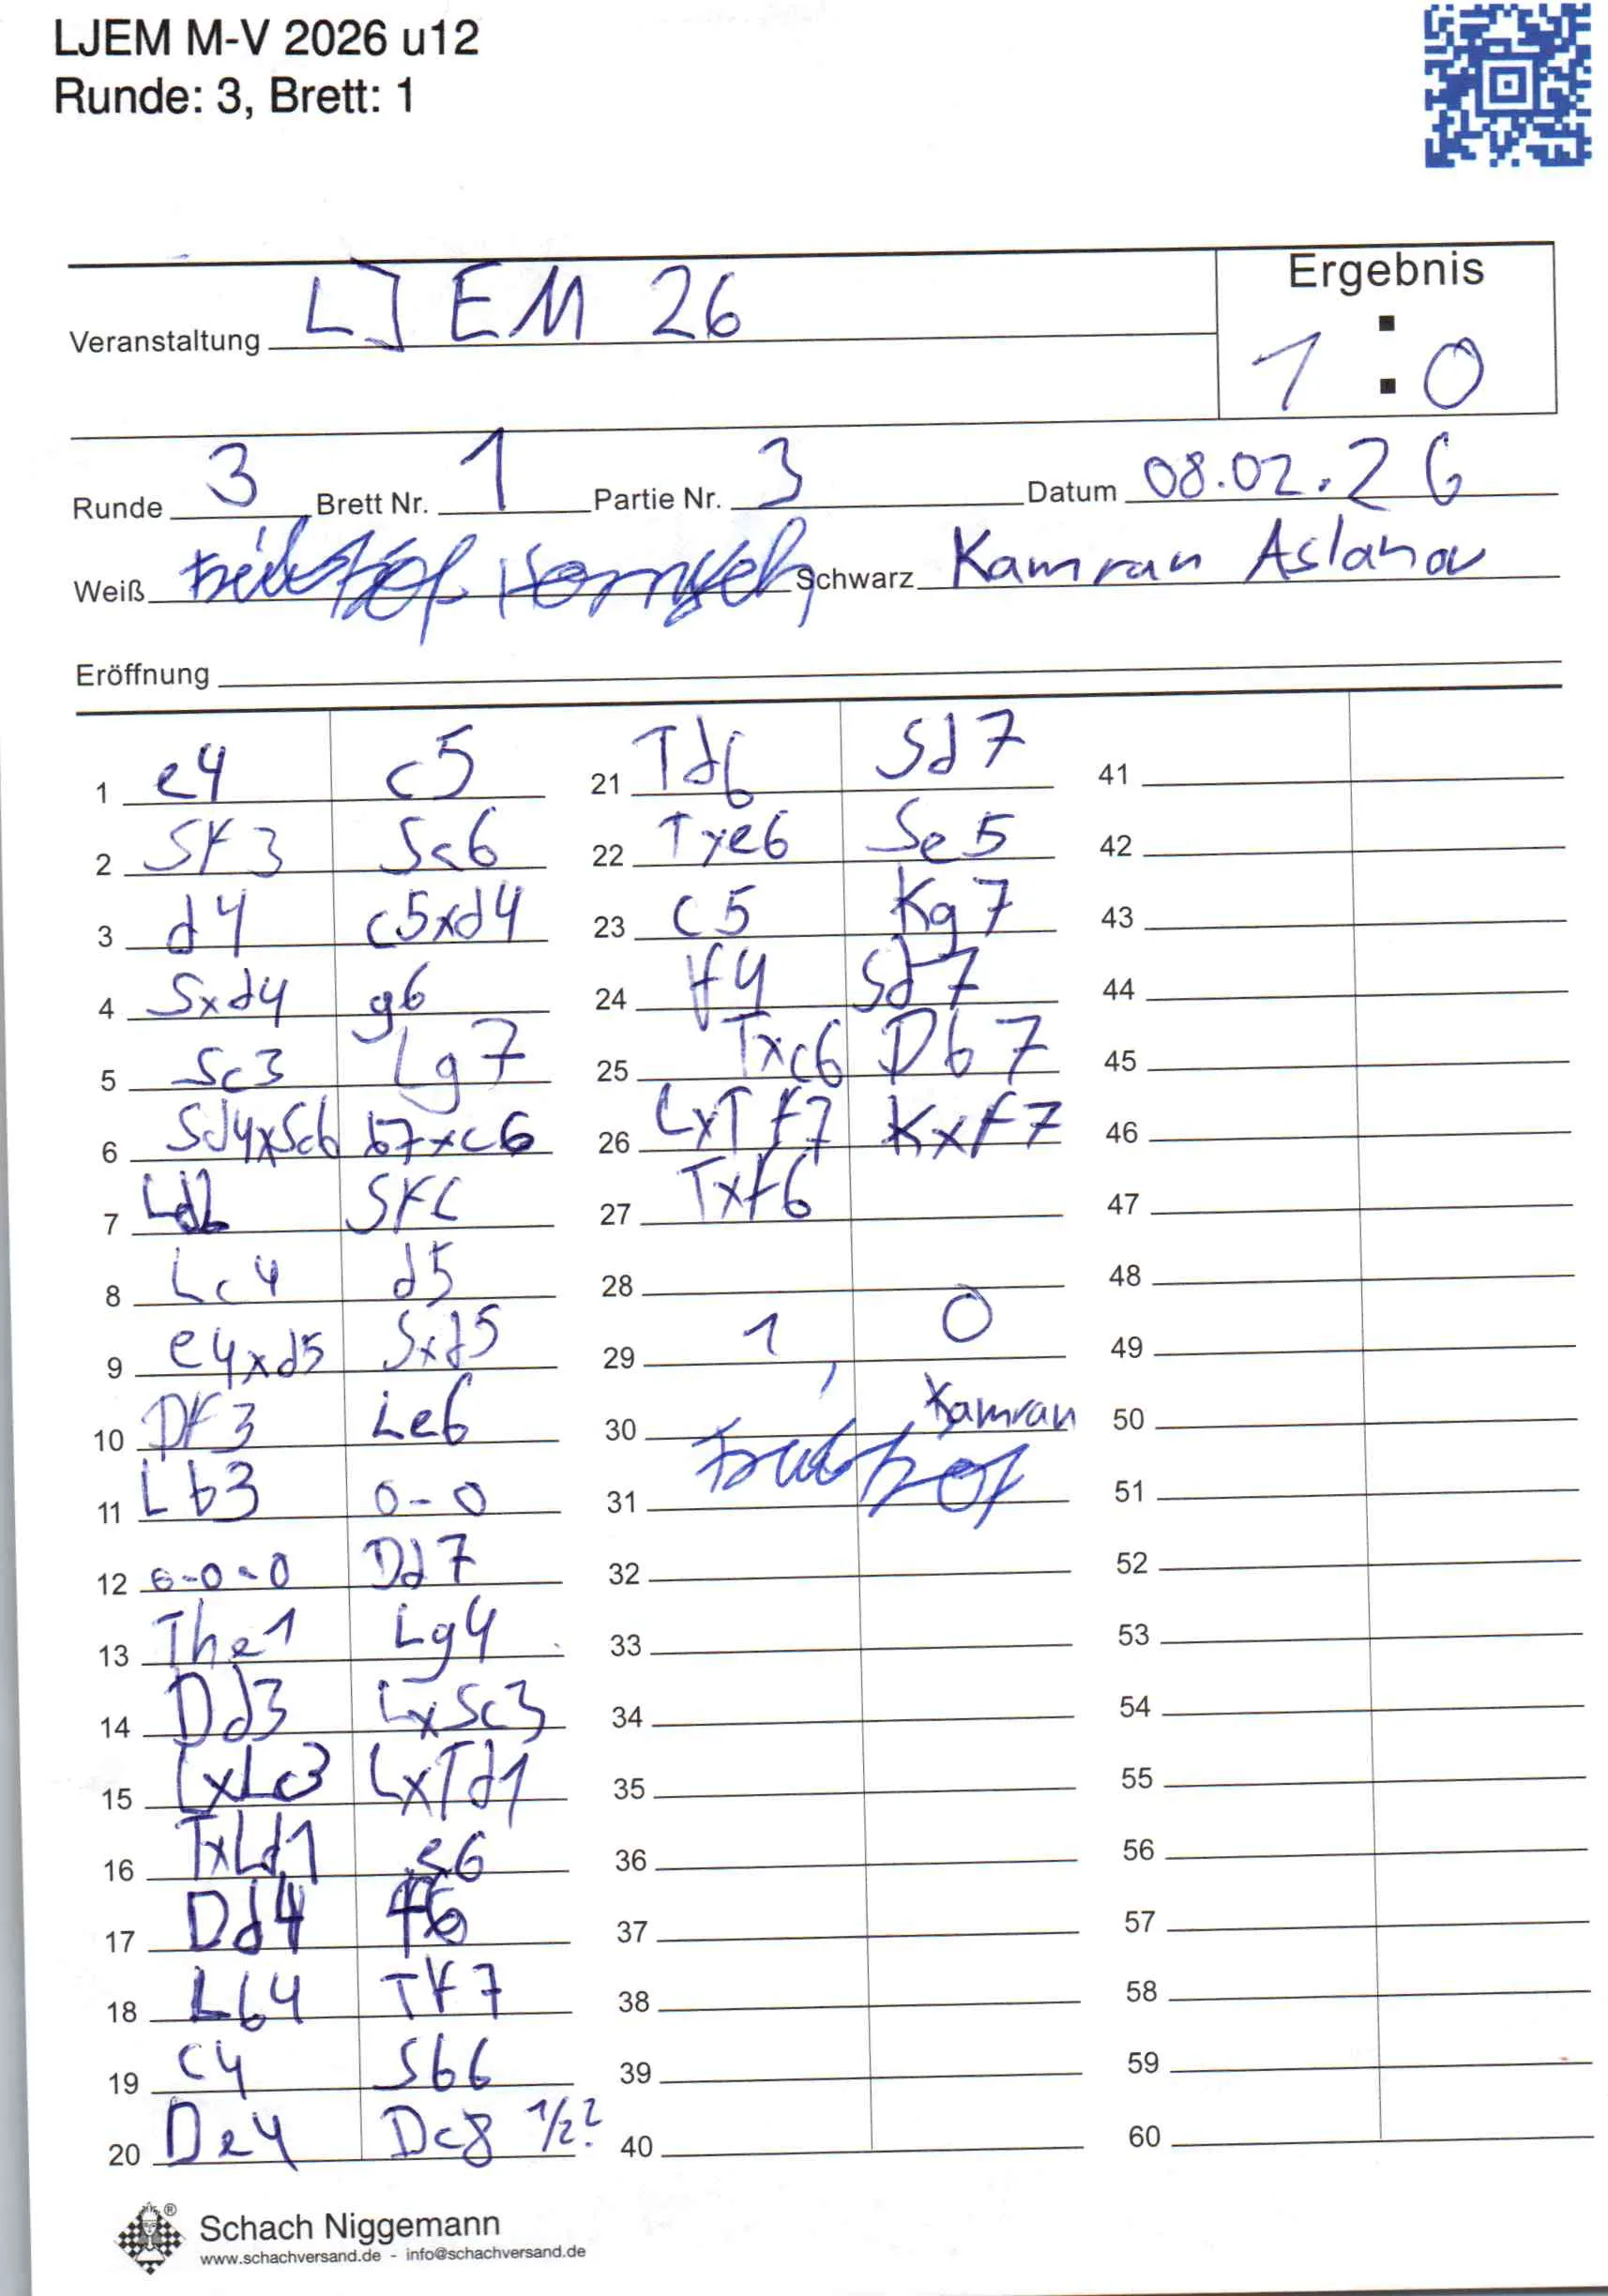 LJEM M-V 2026 u12
Runde: 3, Brett: 1
Ergebnis
1 : 0
Veranstaltung LJEM 26
Runde 3 Brett Nr. 1 Partie Nr. 3 Datum 08.02.26
Weiß Schwarz Kamran Aslanov
Eröffnung
1 e4 c5
2 Sf3 Sc6
3 d4 c5xd4
4 Sxd4 g6
5 Sc3 Lg7
6 Sd4xSc6 b7xc6
7 Ld2 Sf6
8 Lc4 d5
9 e4xd5 Sxd5
10 Df3 Le6
11 Lb3 0-0
12 0-0-0 Dd7
13 The1 Lg4
14 Dd3 LxSc3
15 LxLc3 LxTd1
16 TxLd1 e6
17 Dd4 f6
18 Lb4 Tf7
19 c4 Sb6
20 De4 Dc8 1/2?
21 Td6 Sd7
22 Txe6 Se5
23 c5 Kg7
24 f4 Sd7
25 Txc6 Db7
26 LxTf7 Kxf7
27 Txf6
28
29 1 0
30 Kamran
31
32
33
34
35
36
37
38
39
40
41
42
43
44
45
46
47
48
49
50
51
52
53
54
55
56
57
58
59
60
Schach Niggemann
www.schachversand.de - info@schachversand.de